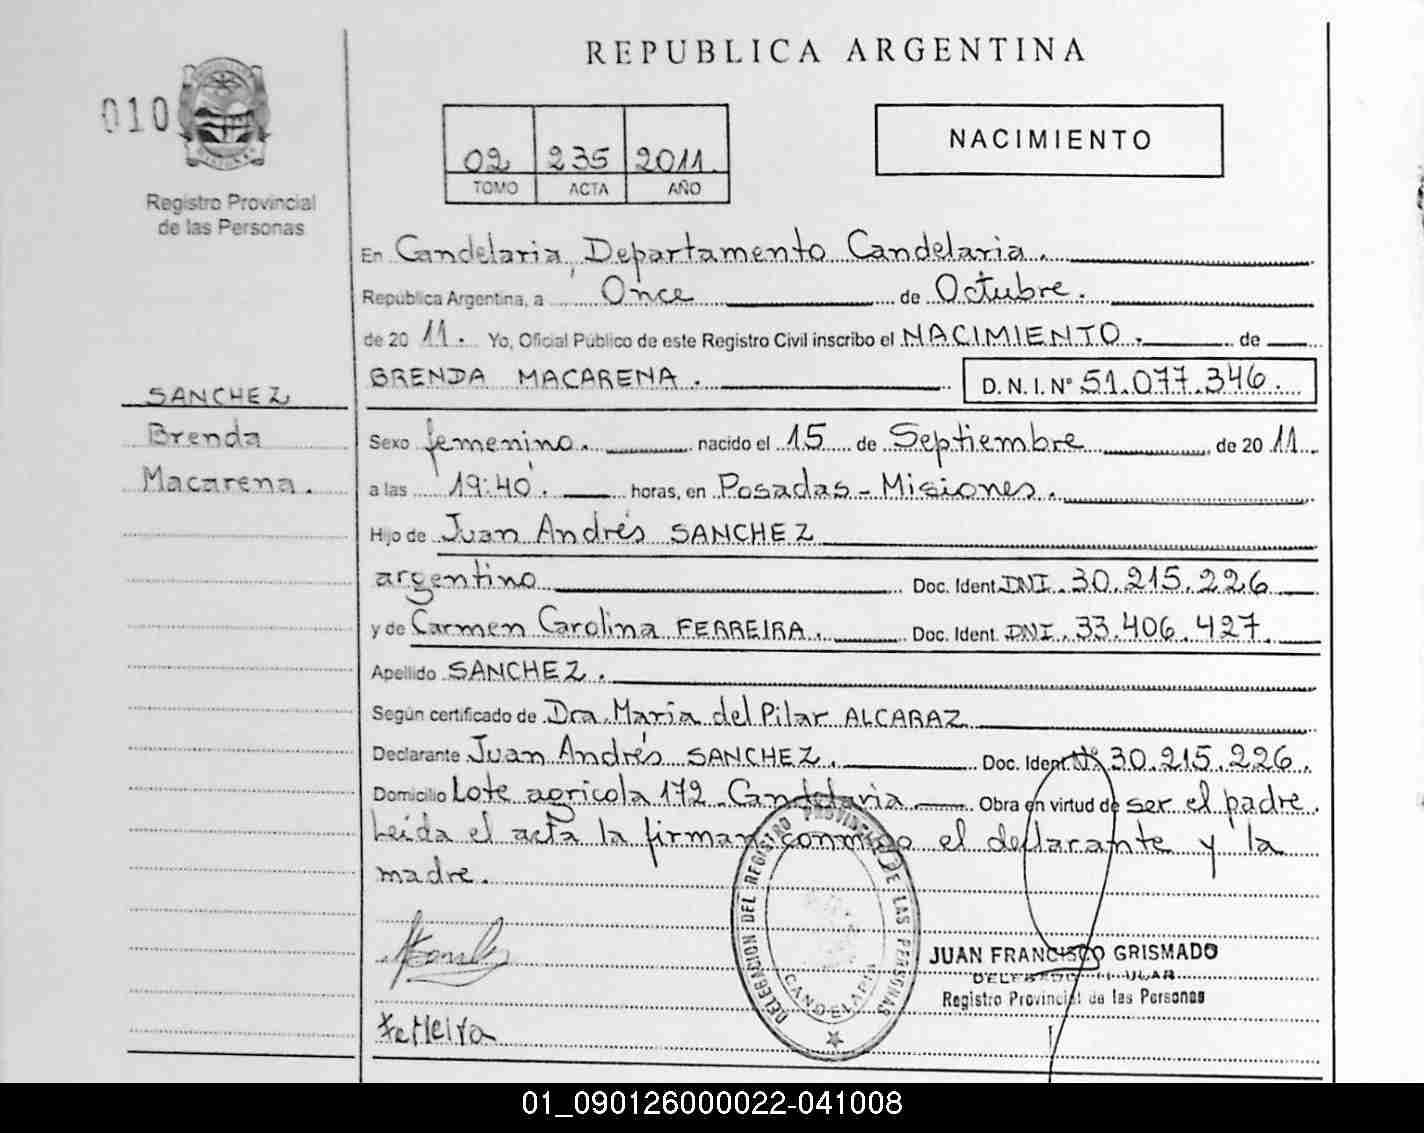 REPUBLICA ARGENTINA
010
Registro Provincial
de las Personas
02 235 2011.
TOMO ACTA AÑO
NACIMIENTO
En Candelaria, Departamento Candelaria.
República Argentina, a Once de Octubre.
de 20 11. Yo, Oficial Público de este Registro Civil inscribo el NACIMIENTO. de
BRENDA MACARENA. D. N. I. Nº 51.077.346.
SANCHEZ
Brenda
Macarena.
Sexo femenino. nacido el 15 de Septiembre de 20 11.
a las 19:40. horas, en Posadas - Misiones.
Hijo de Juan Andrés SANCHEZ
argentino Doc. Ident. DNI. 30.215.226
y de Carmen Carolina FERREIRA. Doc. Ident. DNI. 33.406.427.
Apellido SANCHEZ.
Según certificado de Dra. María del Pilar ALCARAZ
Declarante Juan Andrés SANCHEZ. Doc. Ident. Nº 30.215.226.
Domicilio Lote agrícola 172 - Candelaria Obra en virtud de ser el padre.
Leída el acta la firman conmigo el declarante y la
madre.
DELEGACION DEL REGISTRO PROVINCIAL DE LAS PERSONAS
CANDELARIA
JUAN FRANCISCO GRISMADO
DELEGADO TITULAR
Registro Provincial de las Personas
Ferreira
01_090126000022-041008